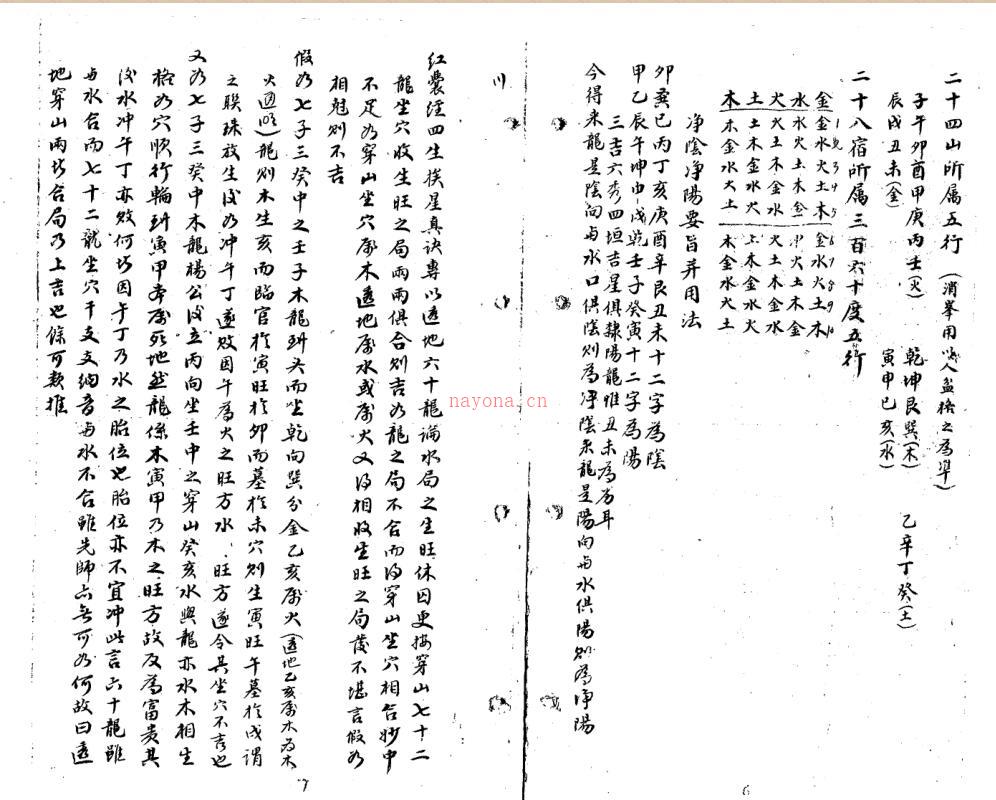 二十四山所属五行 (消拏用以人盆格之為準)
子午卯酉甲庚丙壬(火) 乾坤艮巽(木) 乙辛丁癸(土)
辰戌丑未(金) 寅申巳亥(水)
二十八宿所属三百六十度五行
1 2 3 4 5 6 7 8 9 10
金 金水火土木 金水火土木
水 水火土木金 水火土木金
火 火土木金水 火土木金水
土 土木金水火 土木金水火
木 木金水火土 木金水火土
淨陰淨陽要旨并用法
卯巽巳丙丁亥庚酉辛艮丑未十二字為陰
甲乙辰午坤申戌乾壬子癸寅十二字為陽
三吉六秀四垣吉星俱隸陽龍惟丑未為劣耳
今得来龍是陰向與水口俱陰則為淨陰来龍是陽向與水俱陽則為淨陽
6
川
紅囊經四生挨星真訣專以透地六十龍論水局之生旺休囚更接穿山七十二
龍坐穴收生旺之局兩兩俱合則吉如龍之局不合而得穿山坐穴相合妙中
不足如穿山坐穴屬木透地屬水或屬火又得相收生旺之局發不堪言假如
相剋則不吉
假如七子三癸中之壬子木龍到头而坐乾向巽分金乙亥屬火(透地乙亥屬水為木
火通明)龍則木生亥而臨官於寅旺於卯而墓於未穴則生寅旺午墓於戌謂
之联珠放生后如冲午丁遂敗因午為火之旺方水旺方遂令其坐穴不吉也
又如七子三癸中木龍楊公后立丙向坐壬中之穿山癸亥水與龍亦水木相生
格如穴順行輪到寅甲本屬死地然龍係木寅甲乃木之旺方故反為富貴其
后水冲午丁亦敗何坊因午丁乃水之胎位也胎位亦不宜冲此言六十龍雖
與水合而七十二龍坐穴干支支納音與水不合雖先師亦無可如何故曰透
地穿山兩皆合局乃上吉也餘可類推
7
nayona.cn